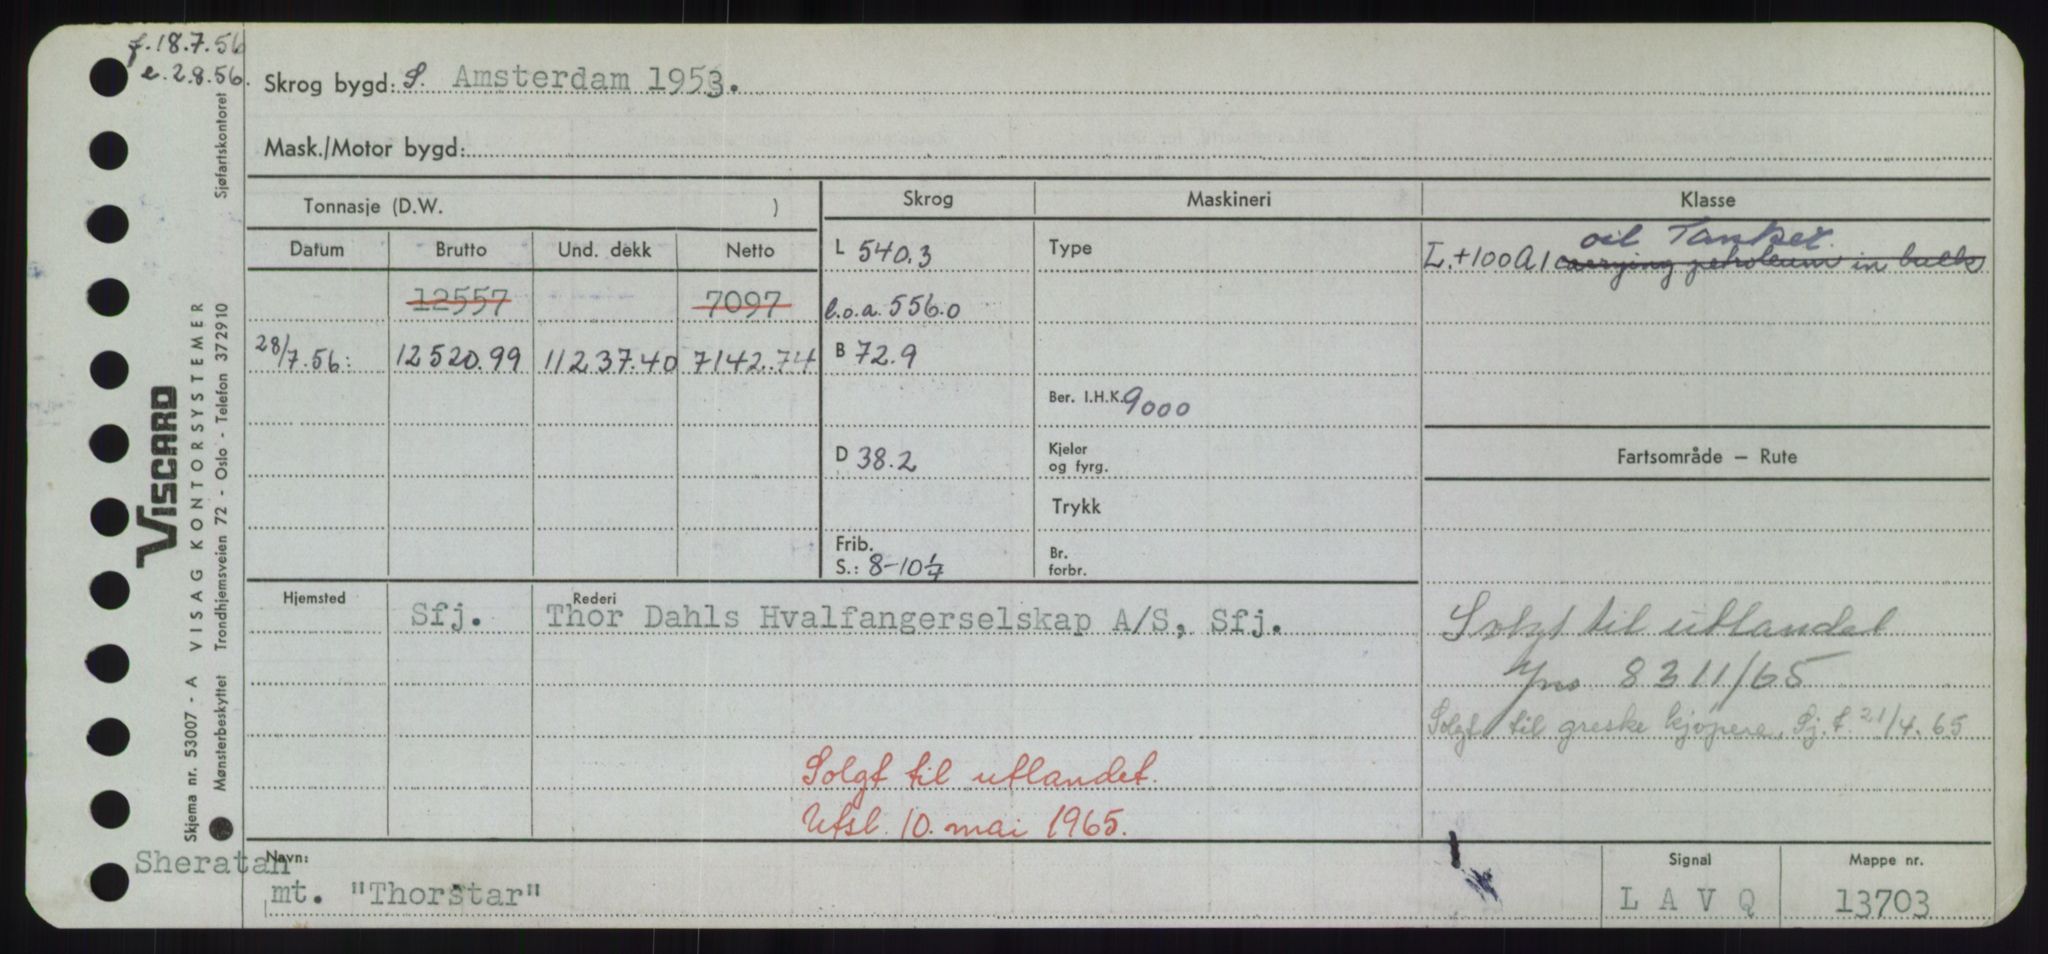 f. 18.7.56
e. 2.8.56.
Skrog bygd: S. Amsterdam 1953.
Mask./Motor bygd:
Tonnasje (D.W. )
Skrog
Maskineri
Klasse
Datum
Brutto
Und. dekk
Netto
L 540.3
Type
oil Tanker.
L.+100A1 carrying petroleum in bulk
12557
7097
l.o.a. 556.0
28/7.56:
12520.99
11237.40
7142.74
B 72.9
Ber. I.H.K. 9000
D 38.2
Kjeler
og fyrg.
Fartsområde — Rute
Trykk
Frib.
S.: 8-10
Br.
forbr.
Hjemsted
Sfj.
Rederi
Thor Dahls Hvalfangerselskap A/S, Sfj.
Solgt til utlandet
8311/65
Solgt til greske kjøpere. Sj. t. 21/4.65
Solgt til utlandet.
Utsl. 10. mai 1965.
Sheratan
Navn:
mt. "Thorstar"
Signal
L A V Q
Mappe nr.
13703
Skjema nr. 53007 - A VISAG KONTORSYSTEMER
Mønsterbeskyttet Trondhjemsveien 72 - Oslo - Telefon 372910
Sjøfartskontoret
VISCARD